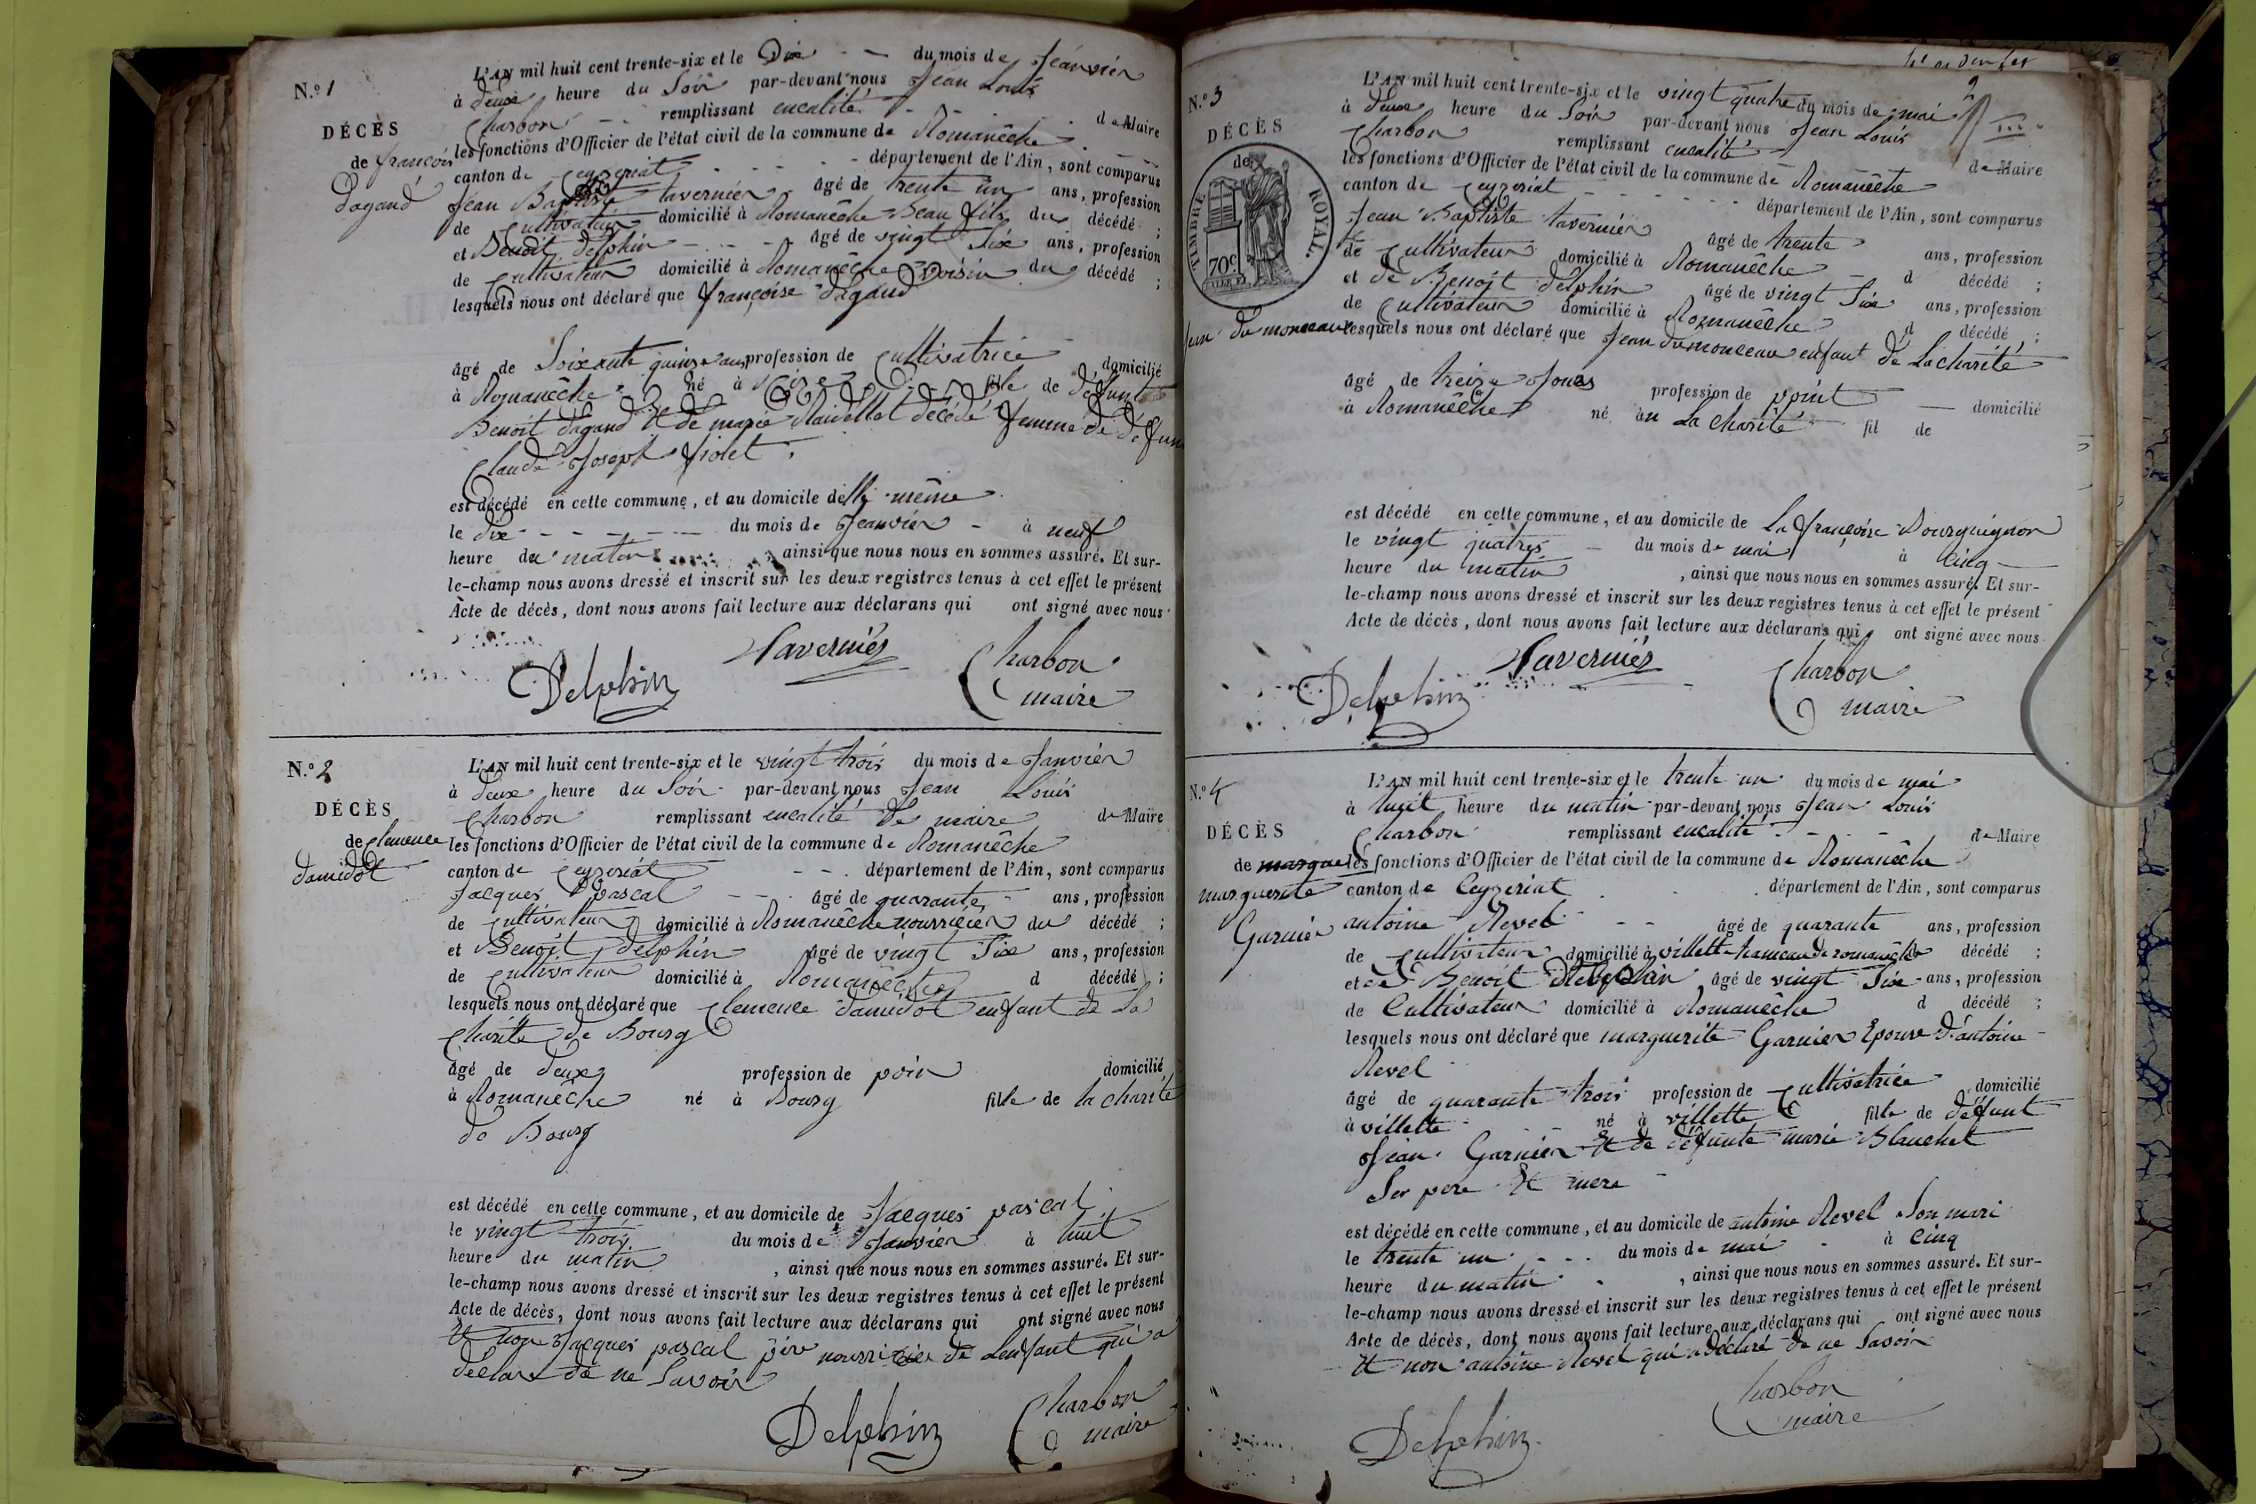 N.º 1
DÉCÈS
de françoise
dagand
L'AN mil huit cent trente-six et le Dix du mois de Jeanvier
à deux heure du Soir par-devant nous Jean Louis
Charbon remplissant encalité de Maire
les fonctions d'Officier de l'état civil de la commune de Romanêche
canton de Ceyzeriat département de l'Ain, sont comparus
Jean Baptiste tavernier âgé de trente un ans, profession
de Cultivateur domicilié à Romanêche Beau fils du décédé ;
et Benoit delphin âgé de vingt Six ans, profession
de Cultivateur domicilié à Romanêche voisin du décédé ;
lesquels nous ont déclaré que françoise dagand
âgé de Soixante quinze ans profession de Cultivatrice domicilié
à Romanêche né à fille de défunt
Benoit dagand et de marie décédé femme de défunt
Claude Joseph fiolet
est décédé en cette commune, et au domicile delle même
le dix du mois de Jeanvier à neuf
heure du matin ainsi que nous nous en sommes assuré. Et sur-
le-champ nous avons dressé et inscrit sur les deux registres tenus à cet effet le présent
Acte de décès, dont nous avons fait lecture aux déclarans qui ont signé avec nous
Delphin Tavernier Charbon
maire
N.º 2
DÉCÈS
de clemence
damidot
L'AN mil huit cent trente-six et le vingt trois du mois de Janvier
à deux heure du Soir par-devant nous Jean Louis
Charbon remplissant encalité de maire de Maire
les fonctions d'Officier de l'état civil de la commune de Romanêche
canton de Ceyzeriat département de l'Ain, sont comparus
Jacques pascal âgé de quarante ans, profession
de Cultivateur domicilié à Romanêche nourricier du décédé ;
et Benoit delphin âgé de vingt Six ans, profession
de Cultivateur domicilié à Romanêche d décédé ;
lesquels nous ont déclaré que Clemence damidot enfant de la
Charité de Bourg
âgé de deux profession de poin domicilié
à Romanêche né à Bourg fille de la charité
de Bourg
est décédé en cette commune, et au domicile de Jacques pascal
le vingt trois du mois de Janvier à huit
heure du matin, ainsi que nous nous en sommes assuré. Et sur-
le-champ nous avons dressé et inscrit sur les deux registres tenus à cet effet le présent
Acte de décès, dont nous avons fait lecture aux déclarans qui ont signé avec nous
et non Jacques pascal père nourricier de Lenfant qui a
déclaré de ne Savoir
Delphin Charbon
maire
2
N.º 3
DÉCÈS
de
TIMBRE ROYAL.
70c
Jean dumonceau
L'AN mil huit cent trente-six et le vingt quatre du mois de mai
à deux heure du Soir par-devant nous Jean Louis
Charbon remplissant encalité de Maire
les fonctions d'Officier de l'état civil de la commune de Romanêche
canton de Ceyzeriat département de l'Ain, sont comparus
Jean Baptiste tavernier âgé de trente ans, profession
de Cultivateur domicilié à Romanêche d décédé ;
et de Benoit delphin âgé de vingt Six ans, profession
de Cultivateur domicilié à Romanêche d décédé ;
lesquels nous ont déclaré que Jean dumonceau enfant de Lacharité
âgé de treize Jours profession de point domicilié
à Romanêche né an La charité fil de
est décédé en cette commune, et au domicile de La françoise Bourguignon
le vingt quatres du mois de mai à Cinq
heure du matin, ainsi que nous nous en sommes assuré. Et sur-
le-champ nous avons dressé et inscrit sur les deux registres tenus à cet effet le présent
Acte de décès, dont nous avons fait lecture aux déclarans qui ont signé avec nous
Delphin Tavernier Charbon
maire
N.º 4
DÉCÈS
de
marguerite
Garnier
L'AN mil huit cent trente-six et le trente un du mois de mai
à huit heure du matin par-devant nous Jean Louis
Charbon remplissant encalité de Maire
les fonctions d'Officier de l'état civil de la commune de Romanêche
canton de Ceyzeriat département de l'Ain, sont comparus
antoine Revel âgé de quarante ans, profession
de Cultivateur domicilié à villette hameau de romanêche décédé ;
et de Benoit Delphin âgé de vingt Six ans, profession
de Cultivateur domicilié à Romanêche d décédé ;
lesquels nous ont déclaré que marguerite Garnier Epouse d'antoine
Revel
âgé de quarante trois profession de Cultivatrice domicilié
à villette né à villette fille de défunt
Jean Garnier et de défunte marie Blanchet
Ser pere et mere
est décédé en cette commune, et au domicile de antoine Revel Son mari
le trente un du mois de mai à Cinq
heure du matin, ainsi que nous nous en sommes assuré. Et sur-
le-champ nous avons dressé et inscrit sur les deux registres tenus à cet effet le présent
Acte de décès, dont nous avons fait lecture aux déclarans qui ont signé avec nous
et non antoine Revel qui a déclaré de ne Savoir
Delphin Charbon
maire